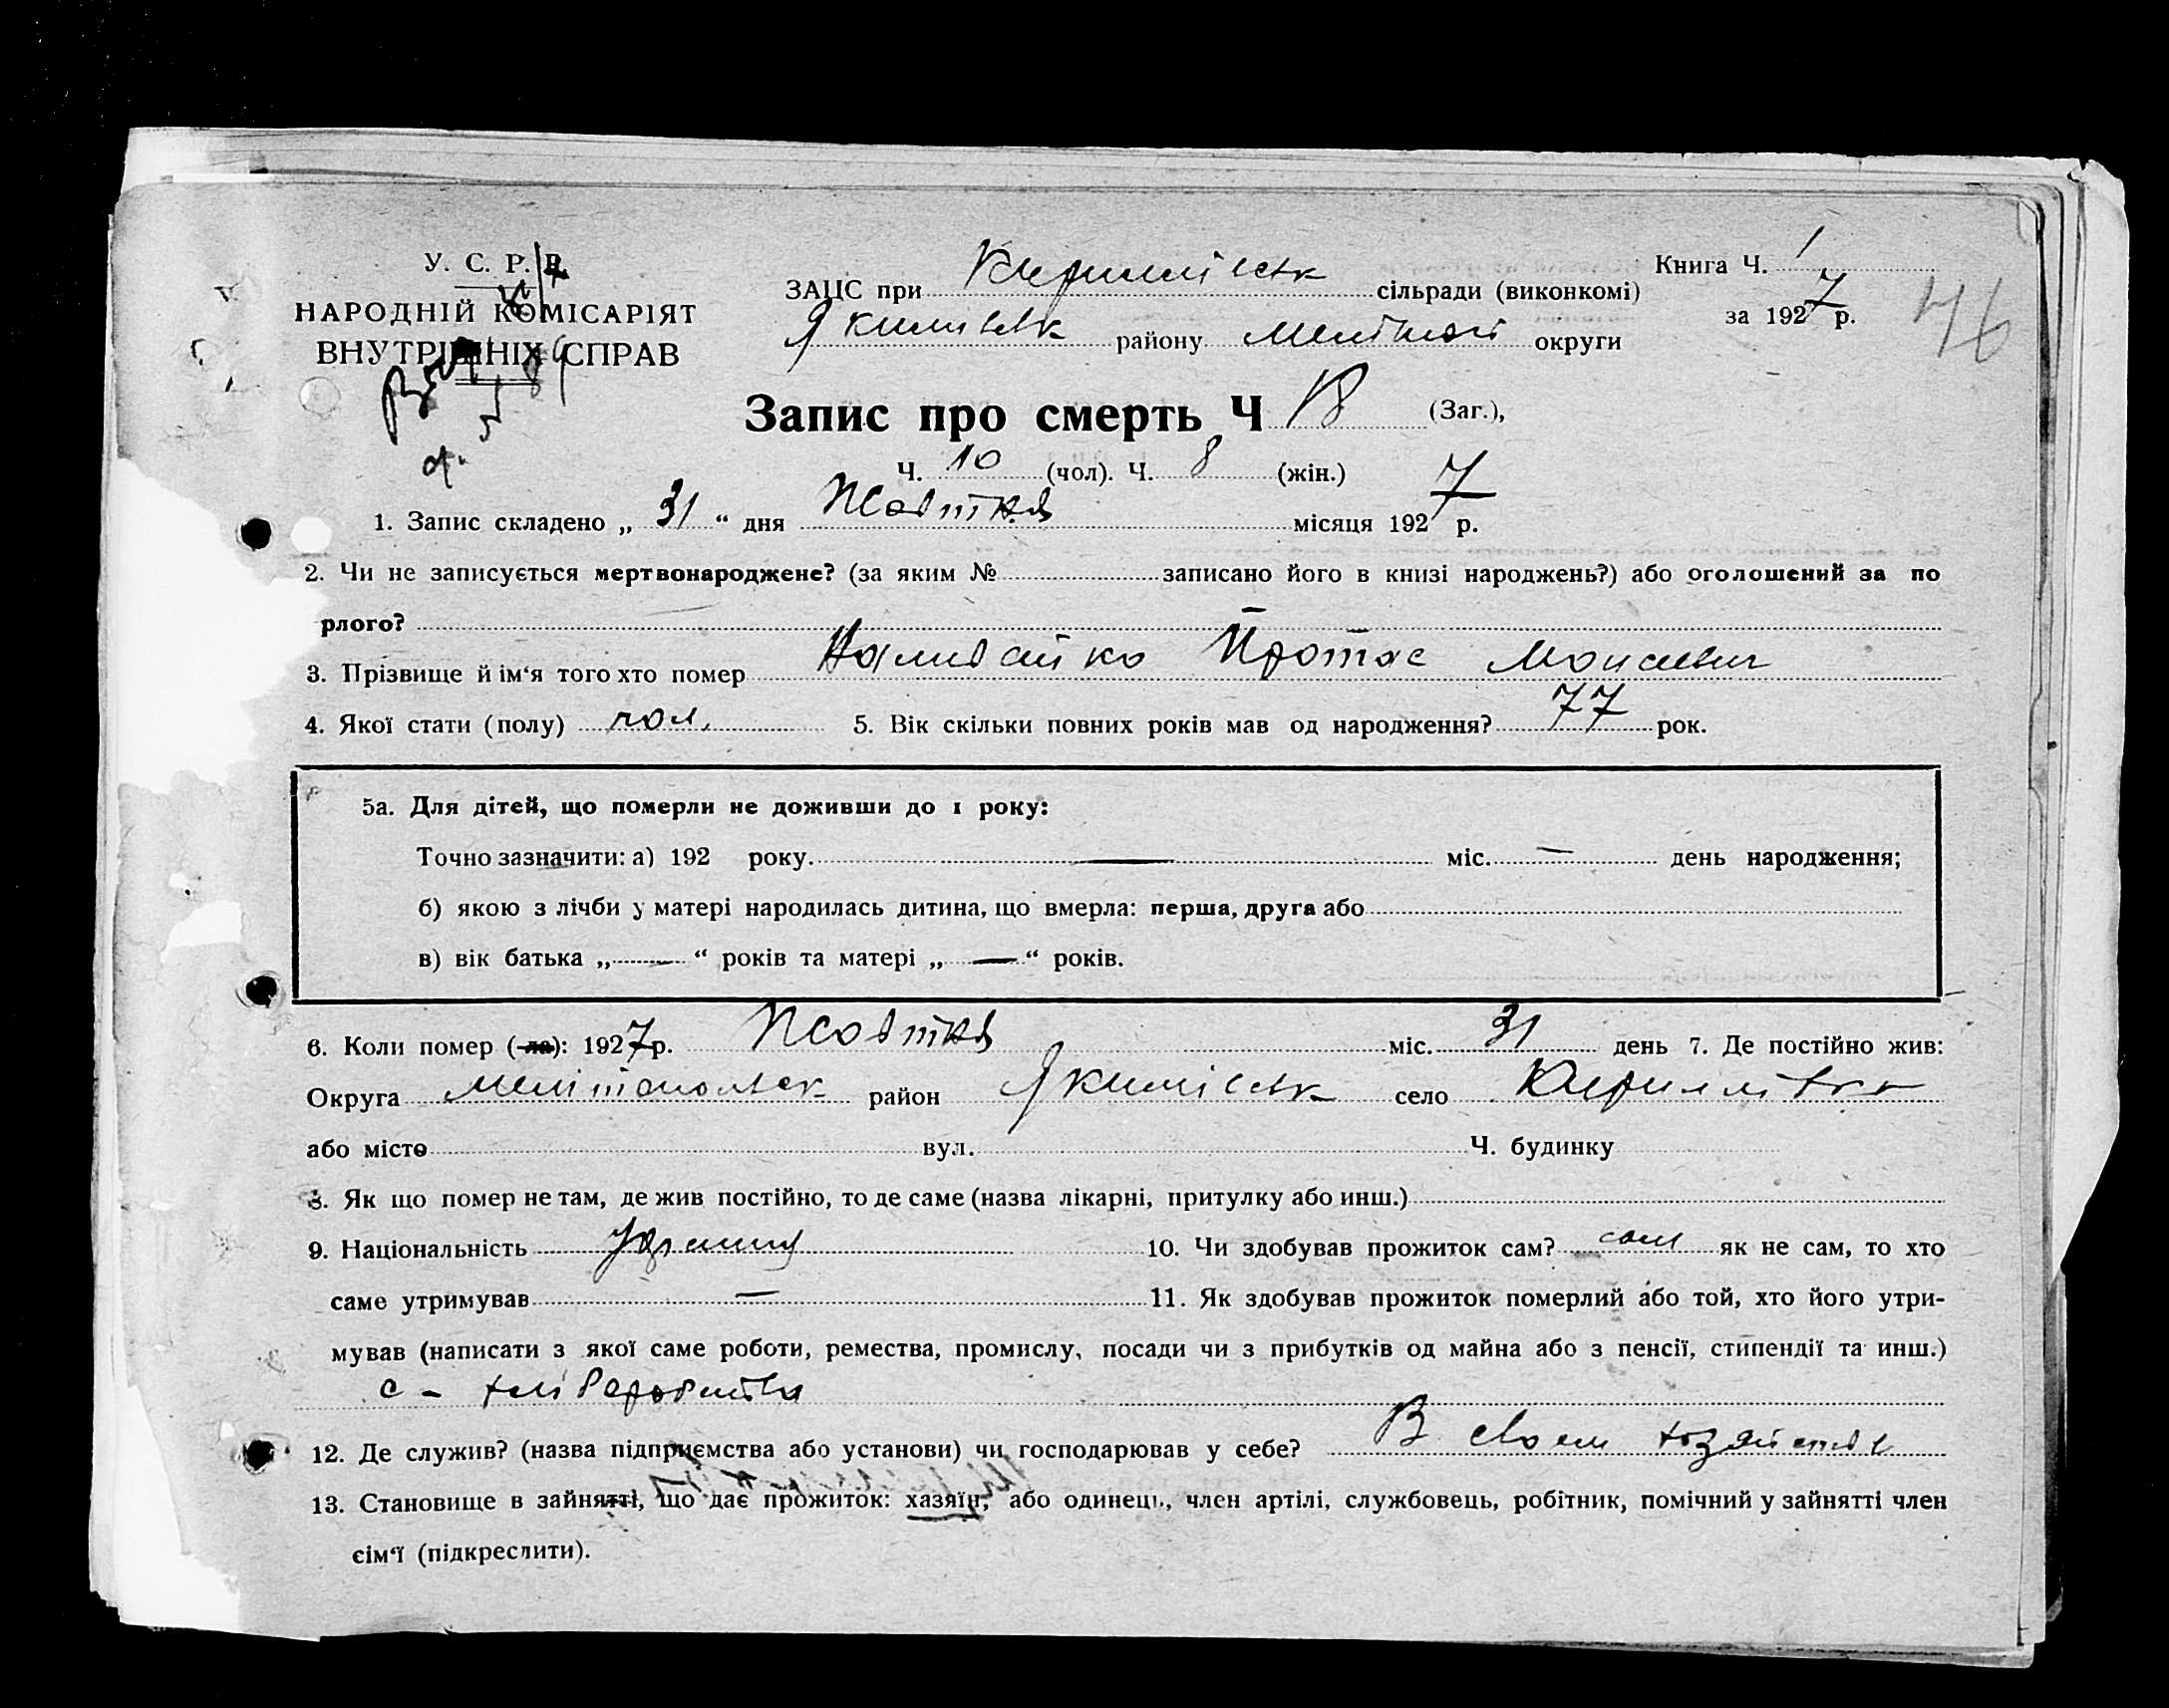 У. С. Р. Р.
НАРОДНІЙ КОМІСАРІЯТ
ВНУТРІШНІХ СПРАВ
ЗАЦС при Кирилівськ сільради (виконкомі)
Якимівськ району Меліток округи
Книга Ч. 1
за 1927 р.
46
Запис про смерть Ч 18 (Заг.),
Ч. 10 (чол). Ч. 8 (жін.)
1. Запис складено „ 31 “ дня Жовтня місяця 1927 р.
2. Чи не записується мертвонароджене? (за яким № записано його в книзі народжень?) або оголошений за по
рлого?
3. Прізвище й ім‘я того хто помер Наливайко Протас Моисеевич
4. Якої стати (полу) чол. 5. Вік скільки повних років мав од народження? 77 рок.
5а. Для дітей, що померли не доживши до 1 року:
Точно зазначити: а) 192 року. — міс. — день народження;
б) якою з лічби у матері народилась дитина, що вмерла: перша, друга або
в) вік батька „ — “ років та матері „ — “ років.
6. Коли помер (ла): 1927 р. Жовтня міс. 31 день 7. Де постійно жив:
Округа Мелітопольск район Якимівськ село Кирилівка
або місто вул. Ч. будинку
8. Як що помер не там, де жив постійно, то де саме (назва лікарні, притулку або инш.)
9. Національність 10. Чи здобував прожиток сам? сам як не сам, то хто
саме утримував — 11. Як здобував прожиток померлий або той, хто його утри-
мував (написати з якої саме роботи, ремества, промислу, посади чи з прибутків од майна або з пенсії, стипендії та инш.)
с - хліборобства
12. Де служив? (назва підприємства або установи) чи господарював у себе? В своем хозяйстве
13. Становище в зайнятті, що дає прожиток: хазяїн, або одинець, член артілі, службовець, робітник, помічний у зайнятті член
сім‘ї (підкреслити).